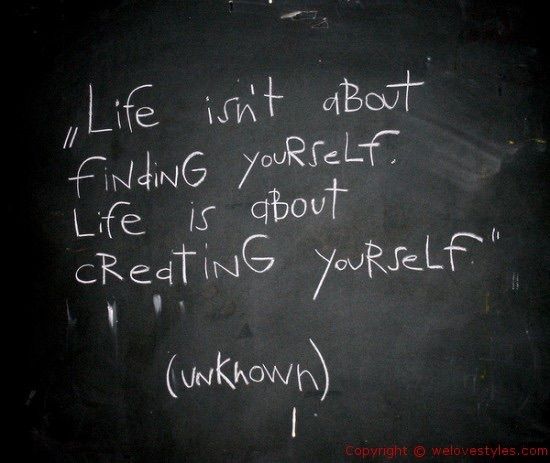 „Life isn't about
finding yourself.
Life is about
creating yourself."
(unknown)
Copyright © welovestyles.com